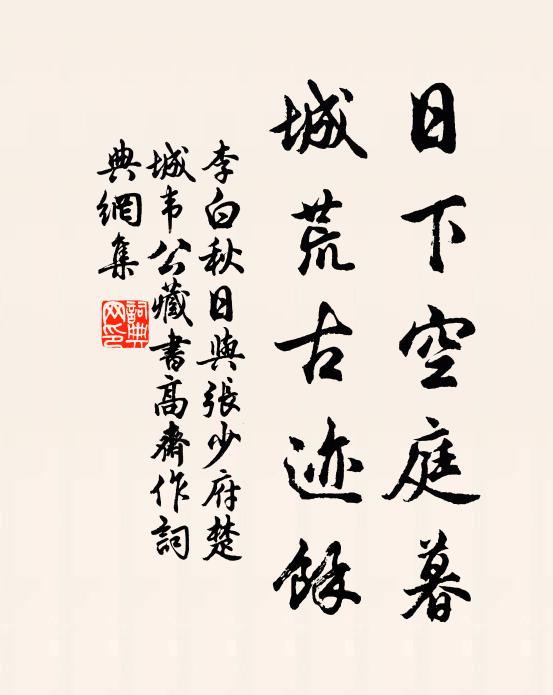 日下空庭暮
城荒古迹餘
李白秋日與張少府楚
城韦公藏書高齋作詞
典網集
詞典
网印